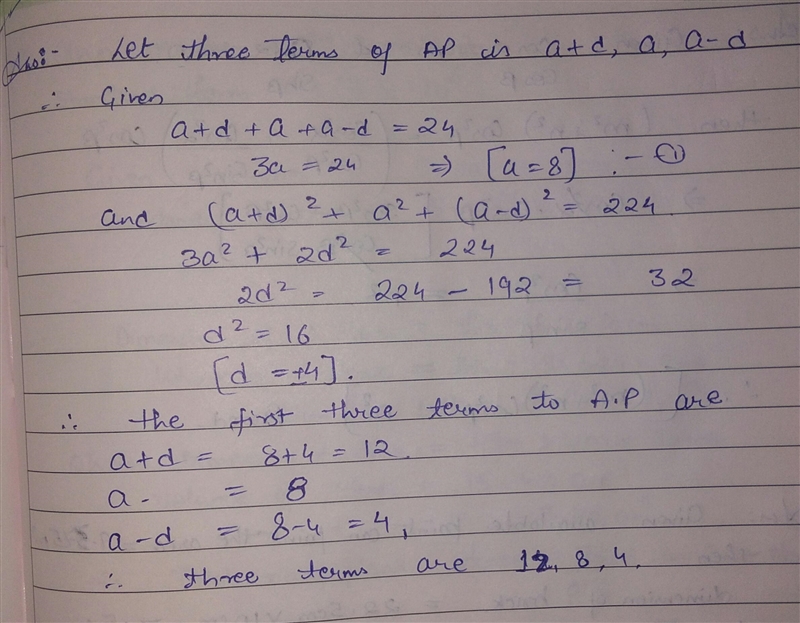 Let three terms of AP is a+d, a, a-d
∴ Given
a+d+a+a-d = 24
3a = 24 ⇒ [a=8] :- ①
and (a+d)² + a² + (a-d)² = 224
3a² + 2d² = 224
2d² = 224 - 192 = 32
d² = 16
[d = ±4].
∴ the first three terms to A.P are
a+d = 8+4 = 12.
a - = 8
a-d = 8-4 = 4,
∴ three terms are 12, 8, 4.